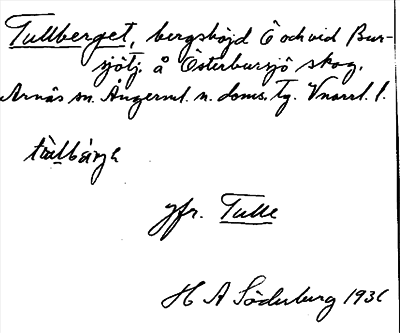 Tullberget, bergshöjd Ö och vid Bur-
sjötj. å Österbursjö skog,
Arnäs sn. Ångerml. n. doms. tg. Vnorrl. l.
jfr. Tulle
H A Söderburg 1936